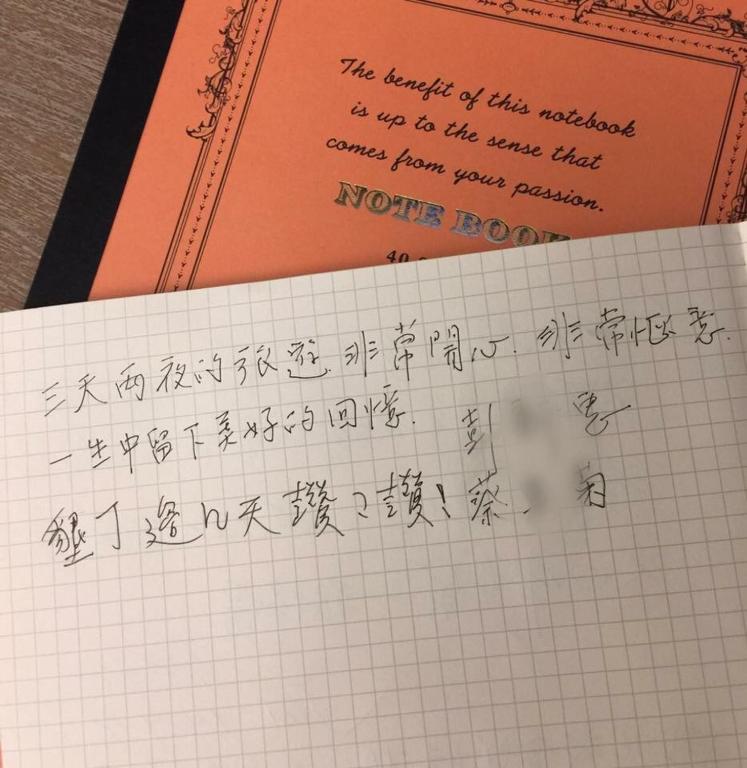 The benefit of this notebook
is up to the sense that
comes from your passion.
NOTE BOOK
40
三天兩夜的旅遊 非常開心. 非常愜意.
一生中留下美好的回憶. 彭 惠
墾丁這几天讚讚! 蔡